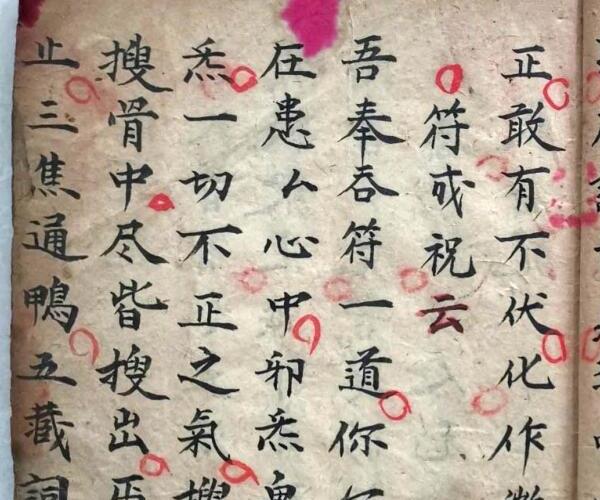 正敢有不伏化作
符咸祝云
吾奉吞符一道你
在患厶心中邪炁鬼
炁一切不正之氣搜
搜骨中尽皆搜出
止三焦通鴨五藏